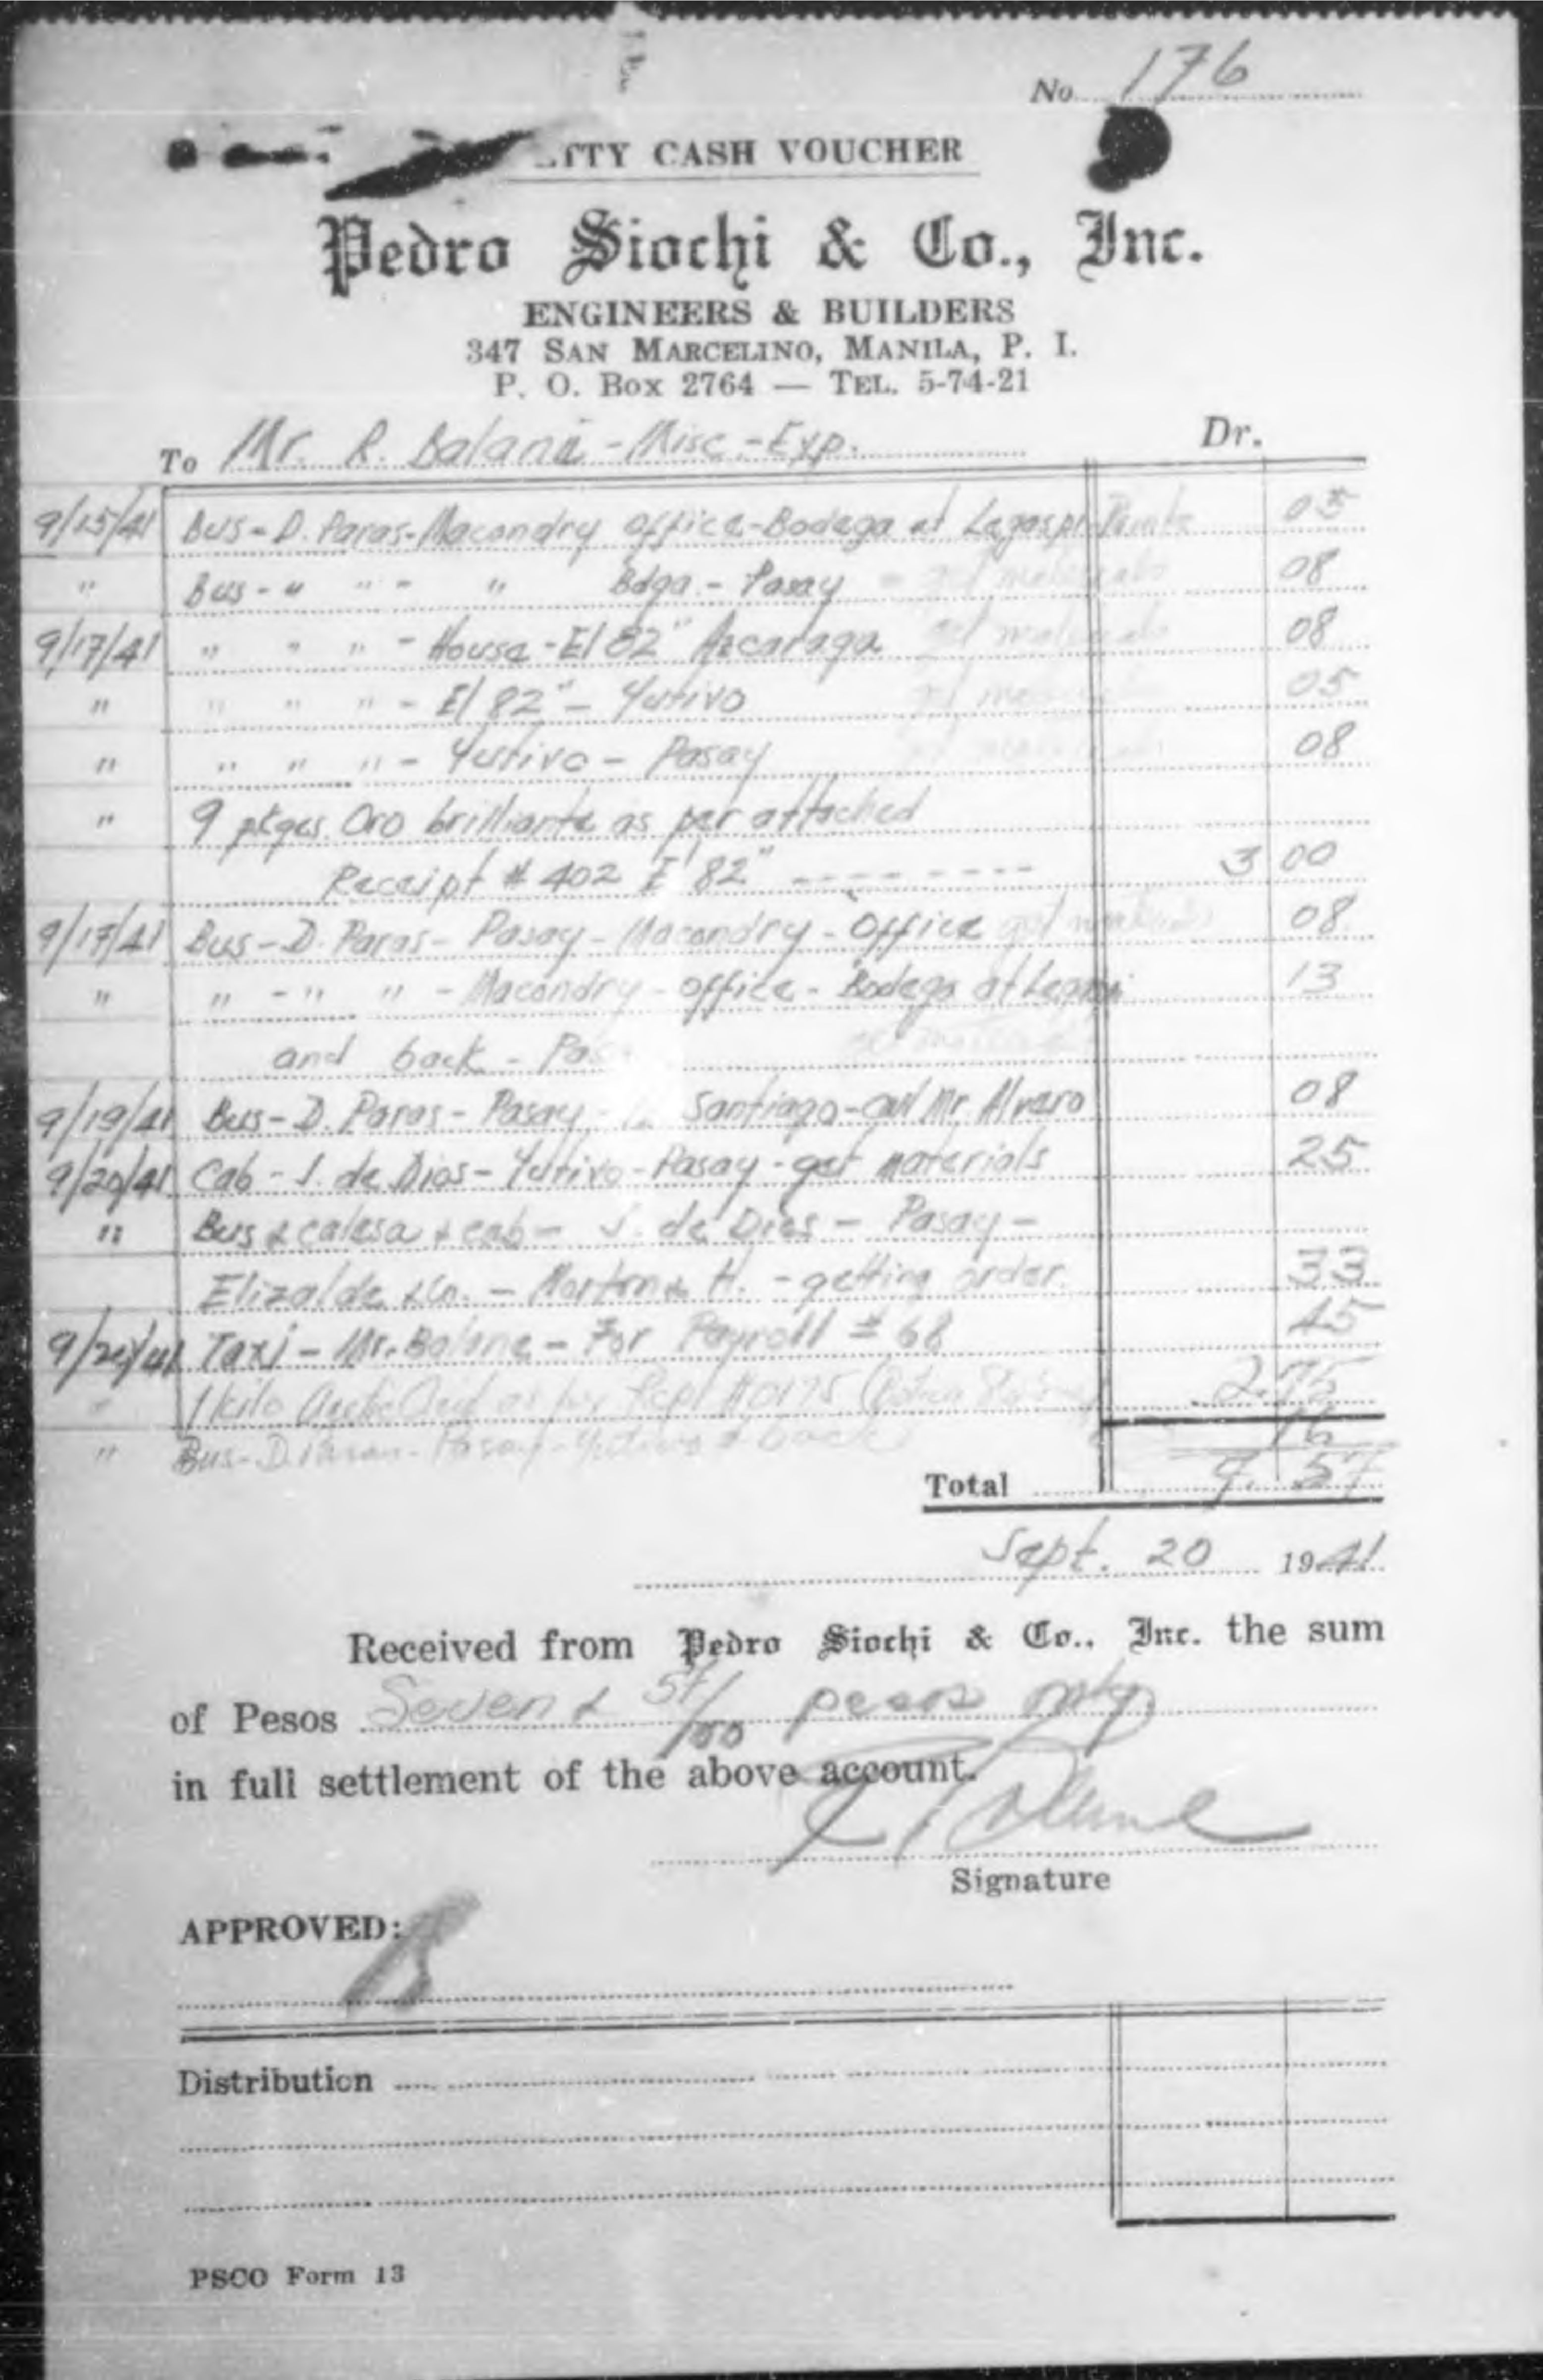 No. 176
TTY CASH VOUCHER
Pedro Siochi & Co., Inc.
ENGINEERS & BUILDERS
347 SAN MARCELINO, MANILA, P. I.
P. O. Box 2764 — TEL. 5-74-21
To Mr. R. Balane - Misc. - Exp. Dr.
9/15/41 Bus - D. Paras - Macondry office - Bodega at Legaspi 05
" Bus - " " - " Bdga. - Pasay - get materials 08
9/17/41 " " " - House - El 82" Azcaraga get materials 08
" " " " - El 82" - Yutivo get materials 05
" " " " - Yutivo - Pasay 08
" 9 pkges. Oro brilliante as per attached
Receipt # 402 E' 82" - - - - - - - - 3 00
9/17/41 Bus - D. Paras - Pasay - Macondry - Office 08
" " - " " - Macondry - office - Bodega at Legaspi 13
and back - get materials
9/19/41 Bus - D. Paras - Pasay - Santiago - call Mr. Alvaro 08
9/20/41 Cab - J. de Dios - Yutivo - Pasay - get materials 25
" Bus & calesa & cab - J. de Dios - Pasay -
Elizalde & Co. - H. - getting order. 33
9/20/41 Taxi - Mr. Balane - For Payroll # 68 45
" 1 kilo as per Rcpt #0175 2.75
" Bus - D. Paras - Pasay - Yutivo & back 16
Total 7. 57
Sept. 20 1941
Received from Pedro Siochi & Co., Inc. the sum
of Pesos Seven & 57/100 pesos only
in full settlement of the above account.
Signature
APPROVED:
Distribution
PSCO Form 13